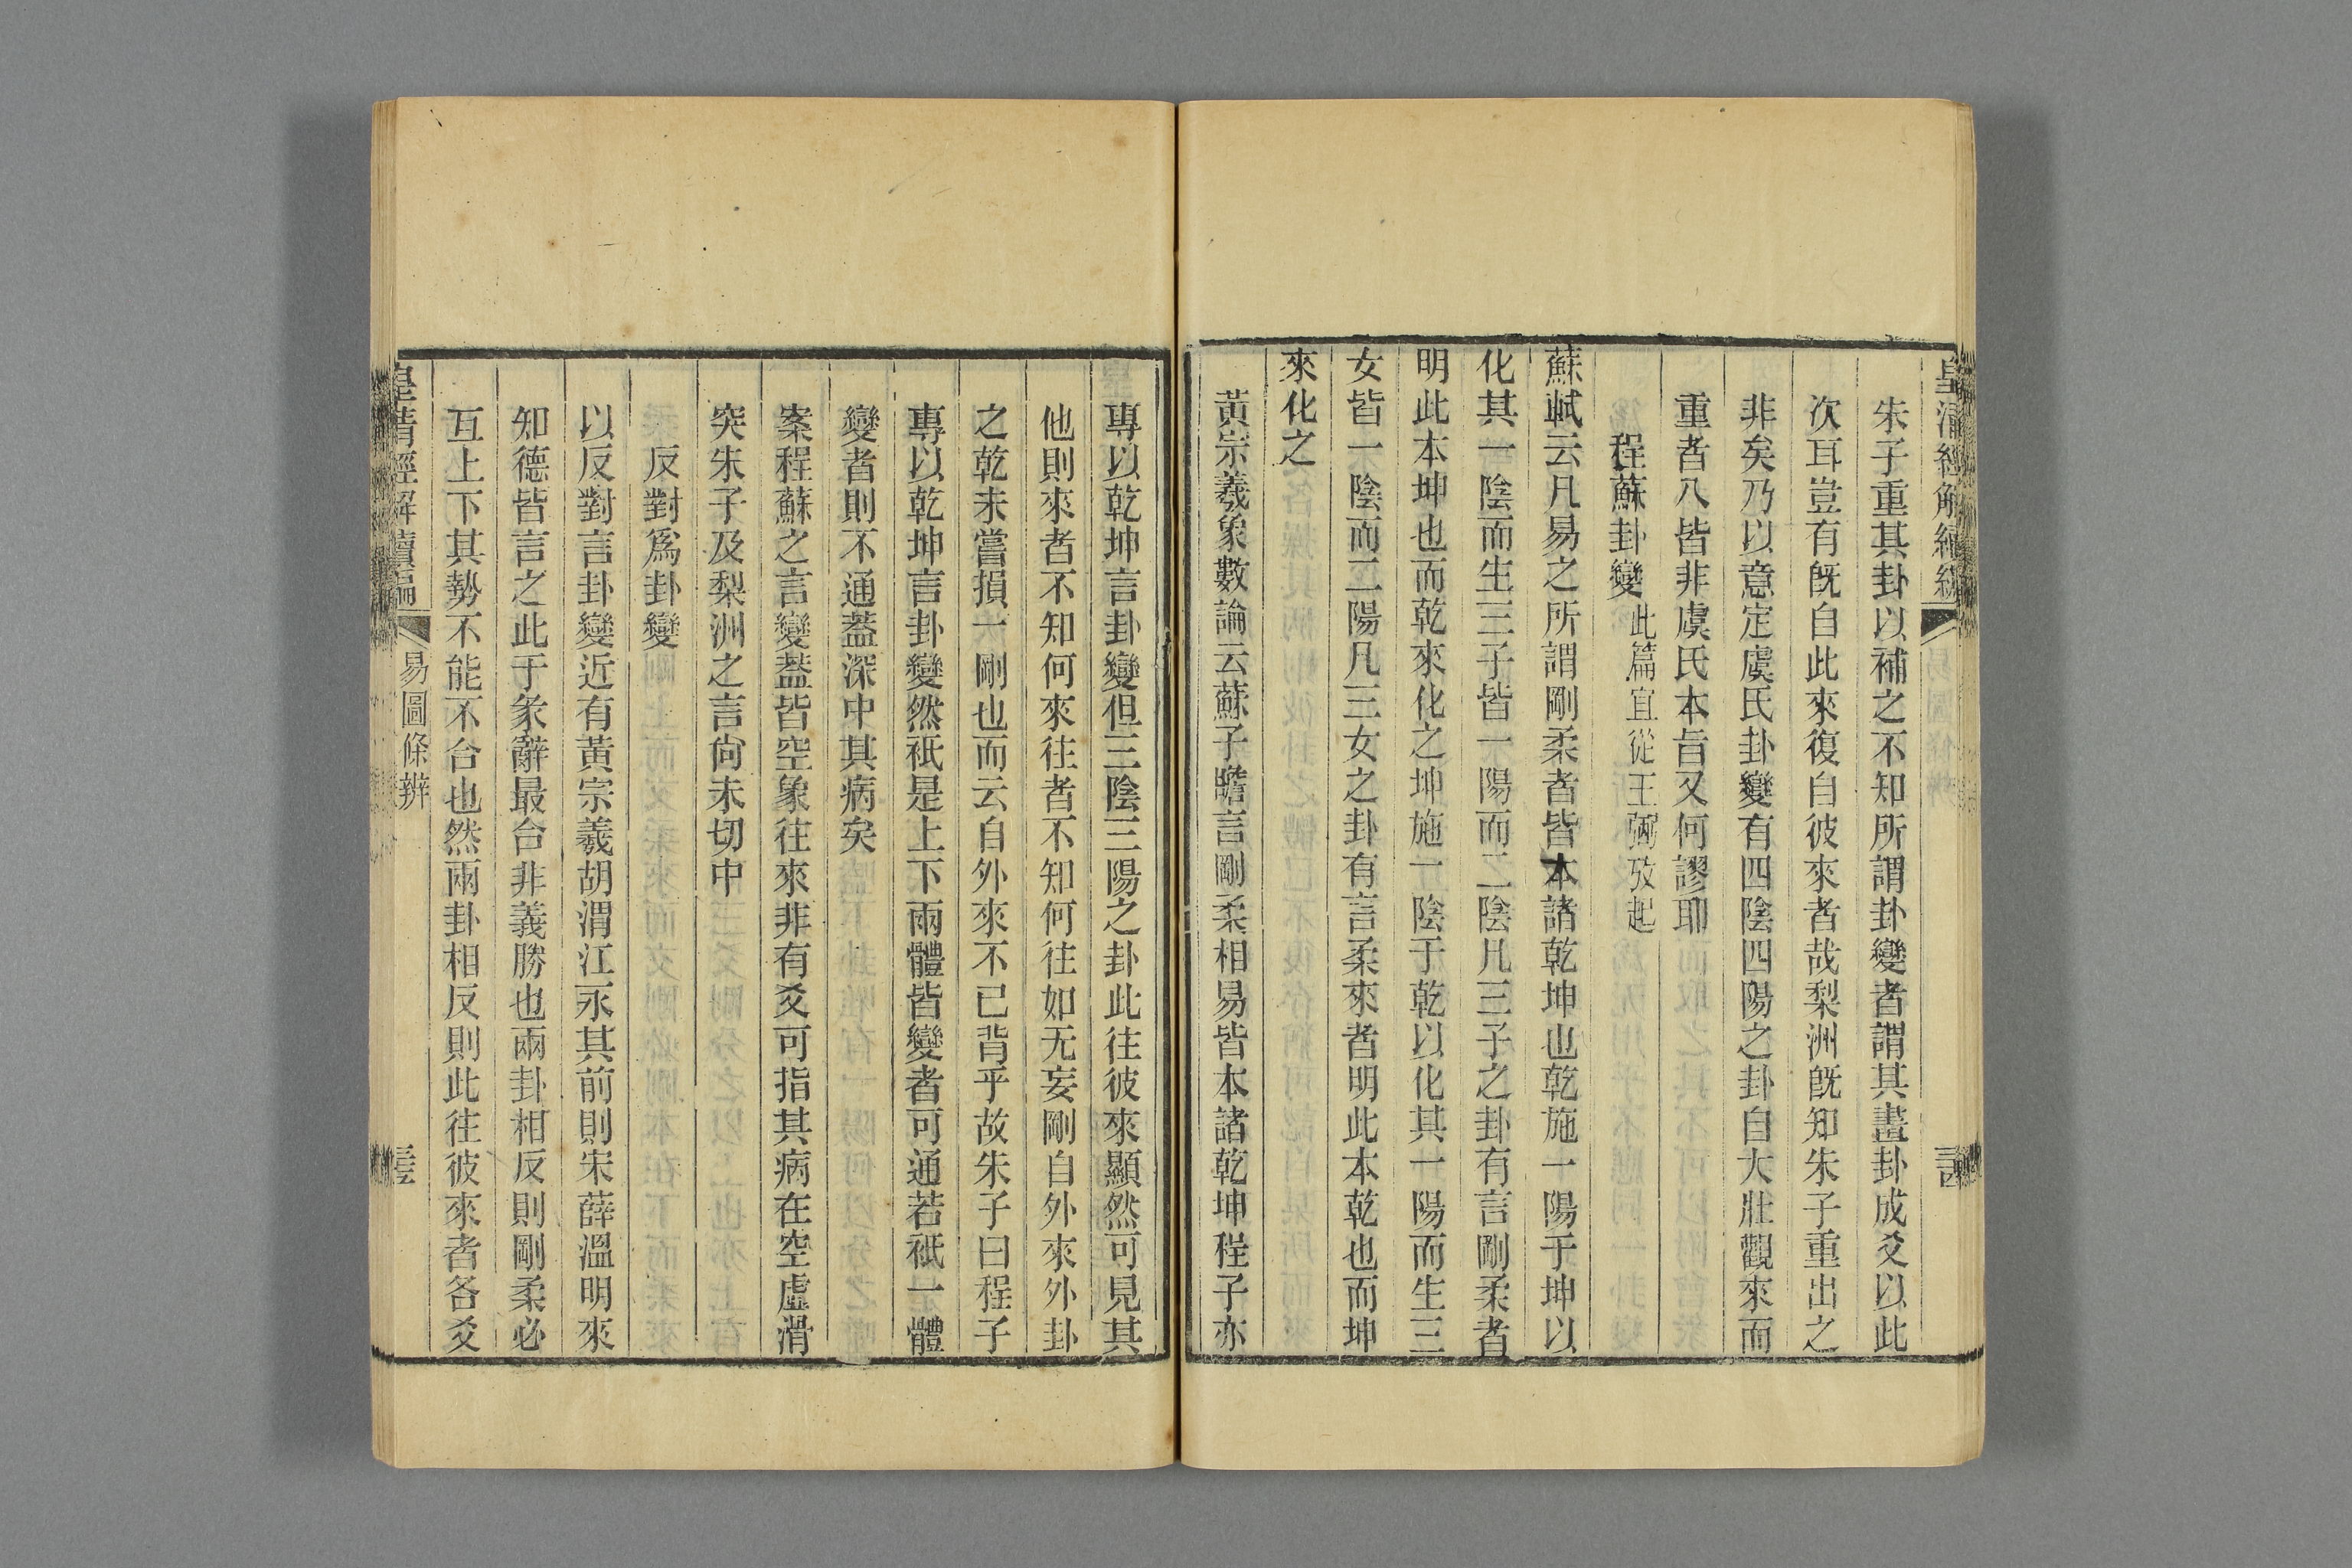 皇清經解續編
朱子重其卦以補之不知所謂卦變者謂其畫卦成爻以此
次耳豈有旣自此來復自彼來者哉梨洲旣知朱子重出之
非矣乃以意定虞氏卦變有四陰四陽之卦自大壯觀來而
重者八皆非虞氏本旨又何謬耶
程蘇卦變此篇宜從王弼攷起
蘇軾云凡易之所謂剛柔者皆本諸乾坤也乾施一陽于坤以
化其一陰而生三子皆一陽而二陰凡三子之卦有言剛柔者
明此本坤也而乾來化之坤施一陰于乾以化其一陽而生三
女皆一陰而二陽凡三女之卦有言柔來者明此本乾也而坤
來化之
黃宗羲象數論云蘇子瞻言剛柔相易皆本諸乾坤程子亦
專以乾坤言卦變但三陰三陽之卦此往彼來顯然可見其
他則來者不知何來往者不知何往如无妄剛自外來外卦
之乾未嘗損一剛也而云自外來不已背乎故朱子曰程子
專以乾坤言卦變然祇是上下兩體皆變者可通若祇一體
變者則不通葢深中其病矣
案程蘇之言變葢皆空象往來非有爻可指其病在空虛滑
突朱子及梨洲之言尙未切中
反對爲卦變
以反對言卦變近有黃宗羲胡渭江永其前則宋薛溫明來
知德皆言之此于彖辭最合非義勝也兩卦相反則剛柔必
互上下其勢不能不合也然兩卦相反則此往彼來者各爻
皇清經解續編
易圖條辨